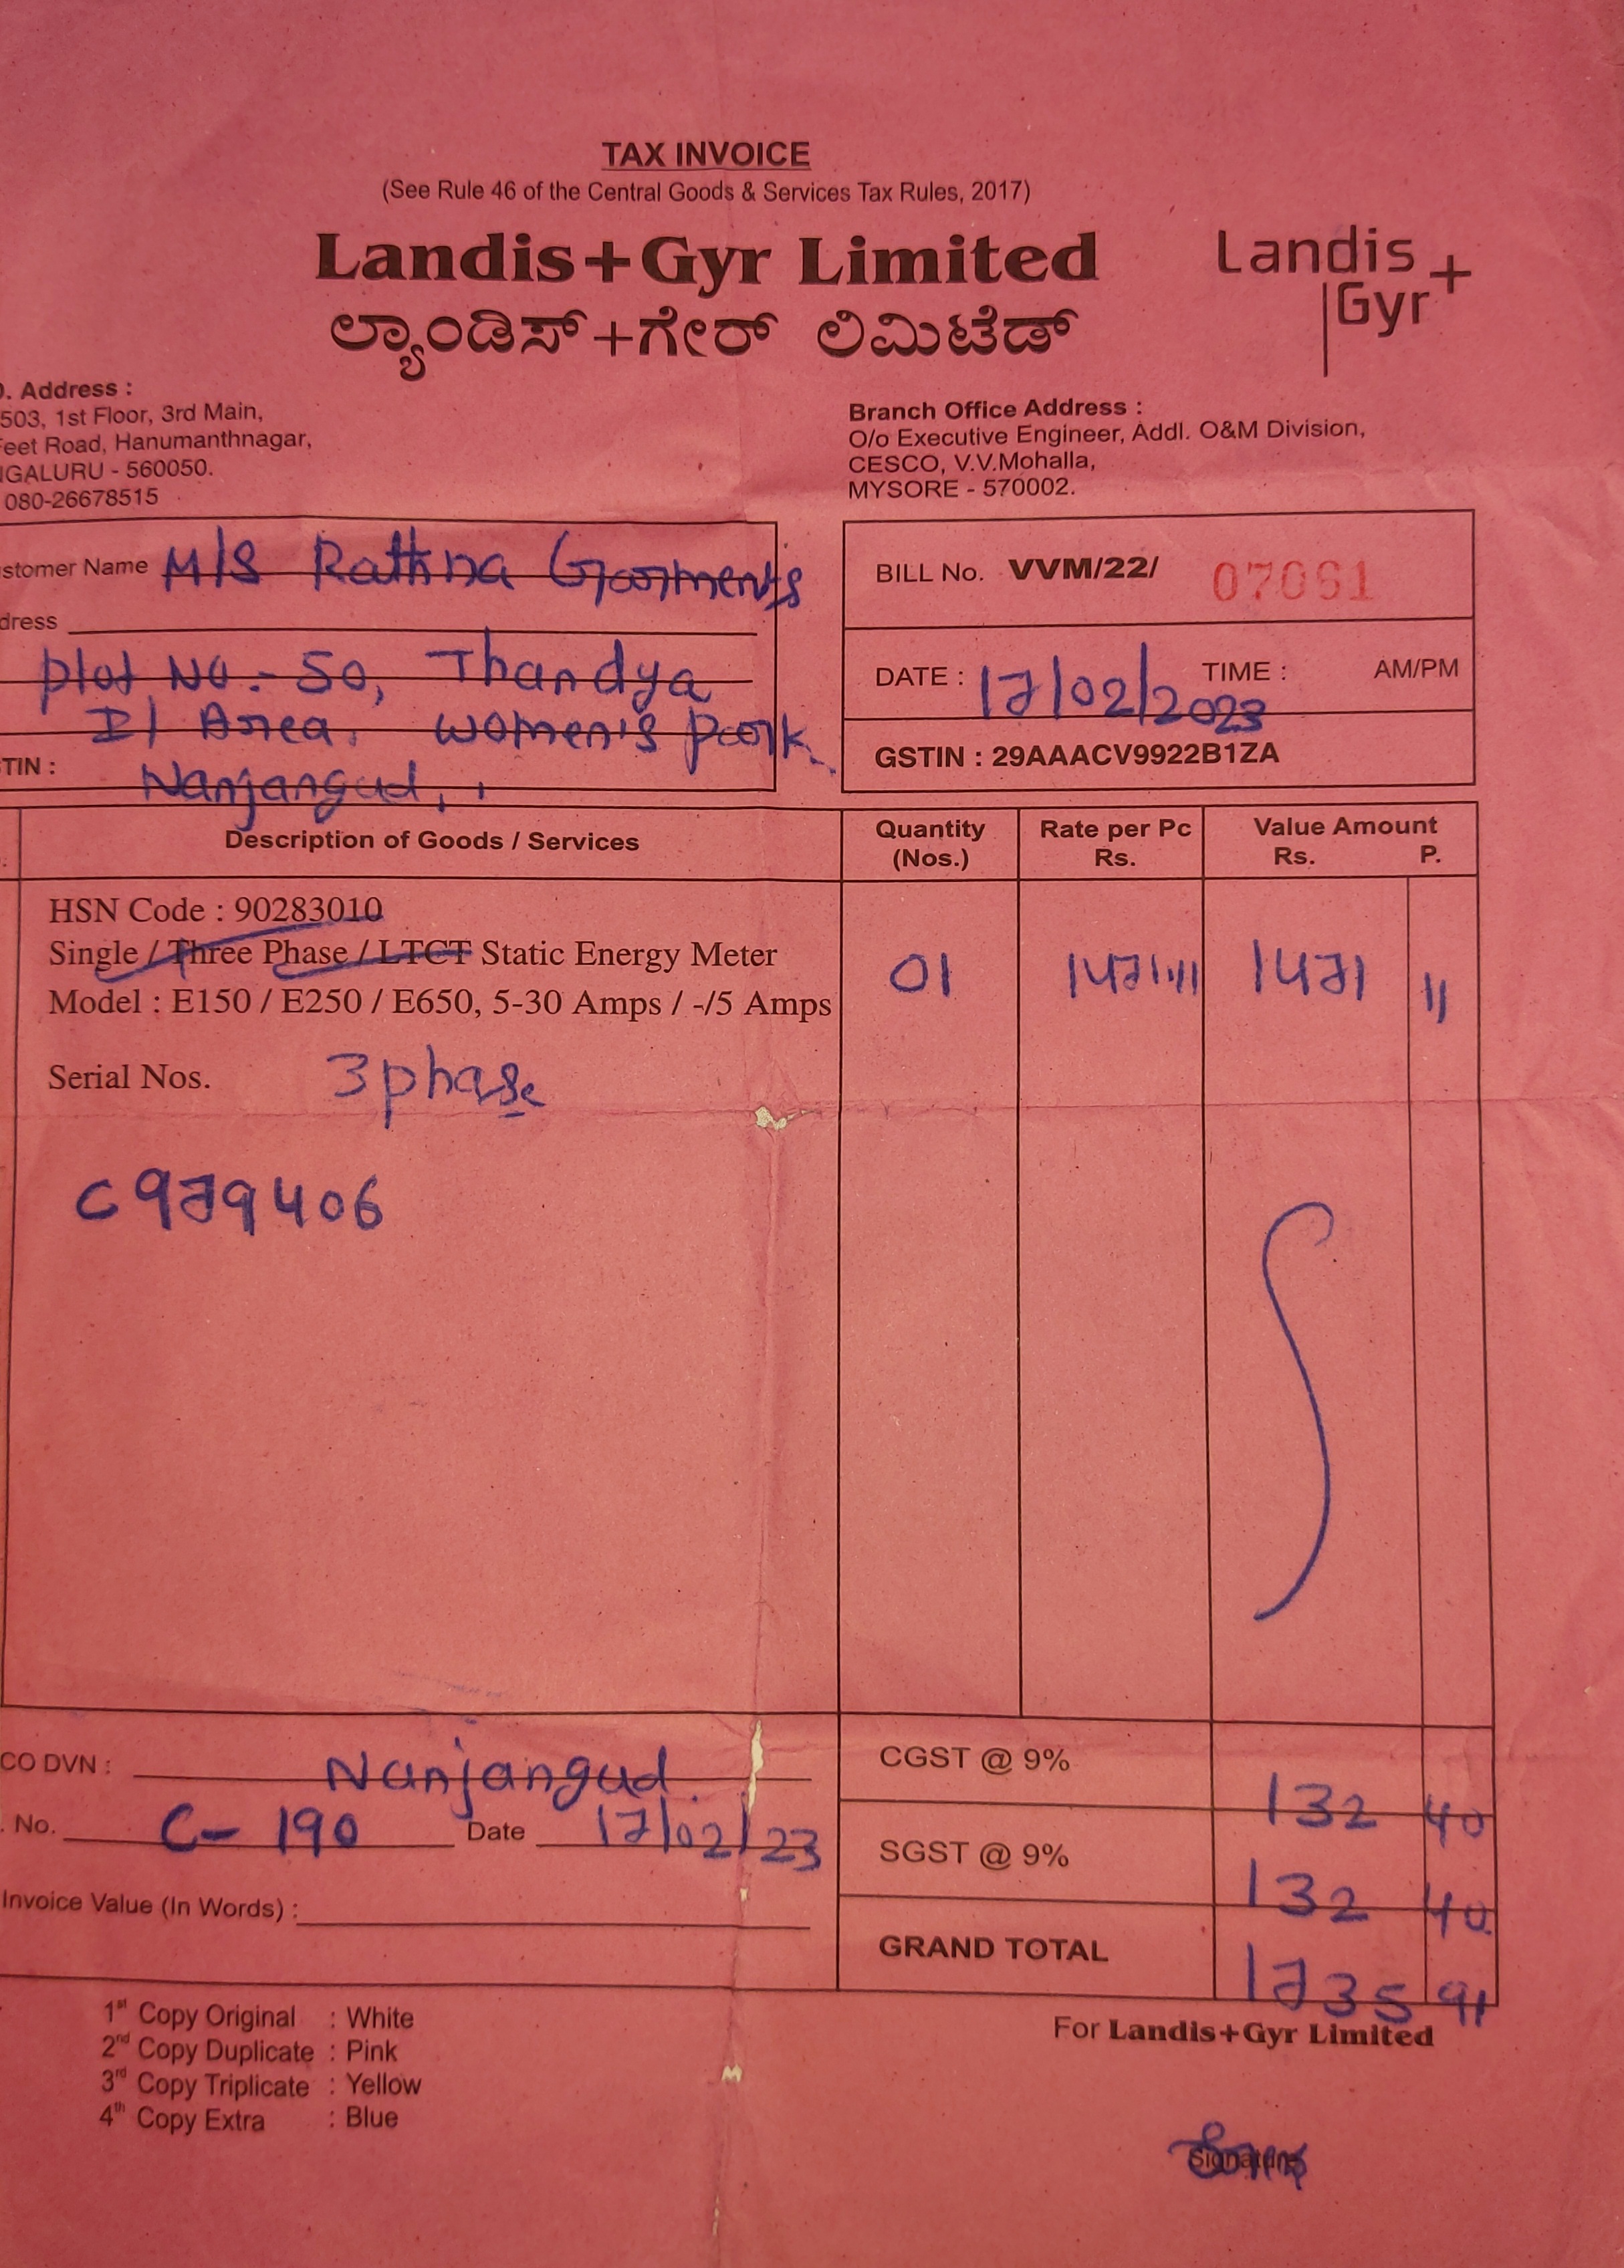 TAX INVOICE
(See Rule 46 of the Central Goods & Services Tax Rules, 2017)
Landis+Gyr Limited
ಲ್ಯಾಂಡಿಸ್+ಗೇರ್ ಲಿಮಿಟೆಡ್
Landis
Gyr+
. Address :
503, 1st Floor, 3rd Main,
Feet Road, Hanumanthnagar,
NGALURU - 560050.
080-26678515
Branch Office Address :
O/o Executive Engineer, Addl. O&M Division,
CESCO, V.V.Mohalla,
MYSORE - 570002.
stomer Name M/S Rathna Garments
dress
plot No.- 50, Thandya
I/ Area. women's park.
TIN :
Nanjangud.
BILL No. VVM/22/ 07061
DATE : 17/02/2023 TIME : AM/PM
GSTIN : 29AAACV9922B1ZA
Description of Goods / Services Quantity (Nos.) Rate per Pc Rs. Value Amount Rs. P.
HSN Code : 90283010
Single / Three Phase / LTCT Static Energy Meter
01 1471/11 1471 11
Model : E150 / E250 / E650, 5-30 Amps / -/5 Amps
Serial Nos. 3 phase
C979406
CO DVN : Nanjangud.
. No. C- 190 Date 17/02/23
Invoice Value (In Words) :
CGST @ 9% 132 40
SGST @ 9% 132 40
GRAND TOTAL 1735 91
1st Copy Original : White
2nd Copy Duplicate : Pink
3rd Copy Triplicate : Yellow
4th Copy Extra : Blue
For Landis+Gyr Limited
Signature